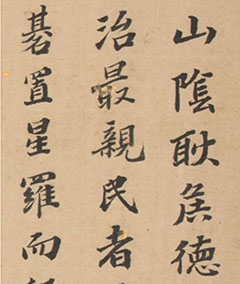 山陰耿侯德
治最親民者
碁置星羅而